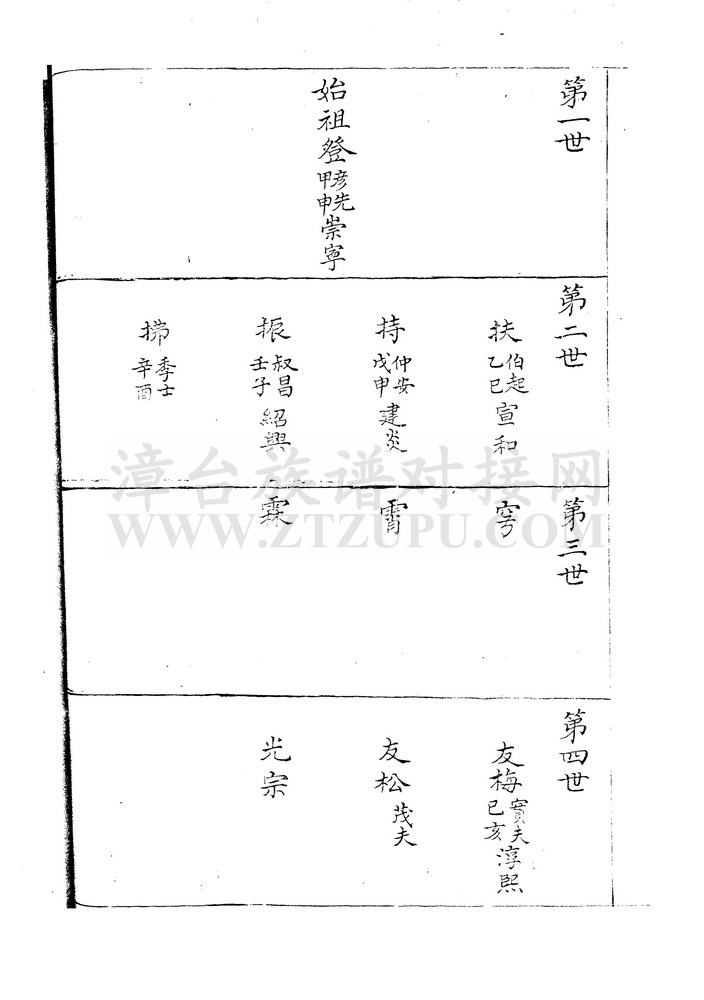 第一世
始祖登彦先甲申崇寧
第二世
扶伯起乙巳宣和
持仲安戊申建炎
振叔昌壬子紹興
季士辛酉
第三世
霄
霖
第四世
友梅實夫己亥淳熙
友松茂夫
光宗
漳台族谱对接网
WWW.ZTZUPU.COM